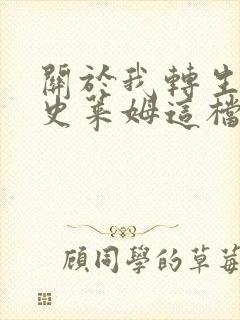 關於我轉生
史萊姆這檔
顧同學的草莓